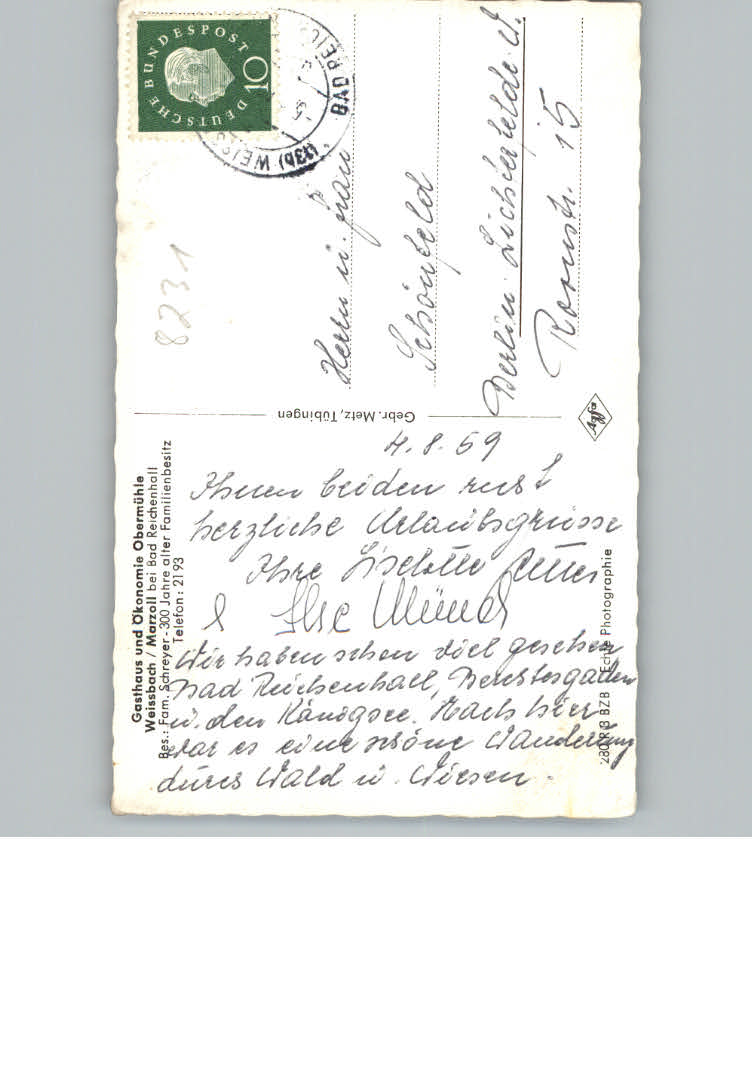 Gasthaus und Ökonomie Obermühle
Weissbach / Marzoll bei Bad Reichenhall
Bes.: Fam. Schreyer - 300 Jahre alter Familienbesitz
Telefon: 21 93
4.8.59
Ihnen beiden recht
herzliche Urlaubsgrüsse
Ihre Liselotte
& Ilse Münch
Wir haben schon viel gesehen
Bad Reichenhall, Berchtesgaden
u. den Königsee. Nach hier
war es eine schöne Wanderung
durch Wald u. Wiesen.
Gebr. Metz, Tübingen
Agfa
Echte Photographie
DEUTSCHE BUNDESPOST
10
(13b) WEISS
BAD REIC
8231
Herrn u. Frau
Schönfeld
Berlin-Lichterfelde W.
15